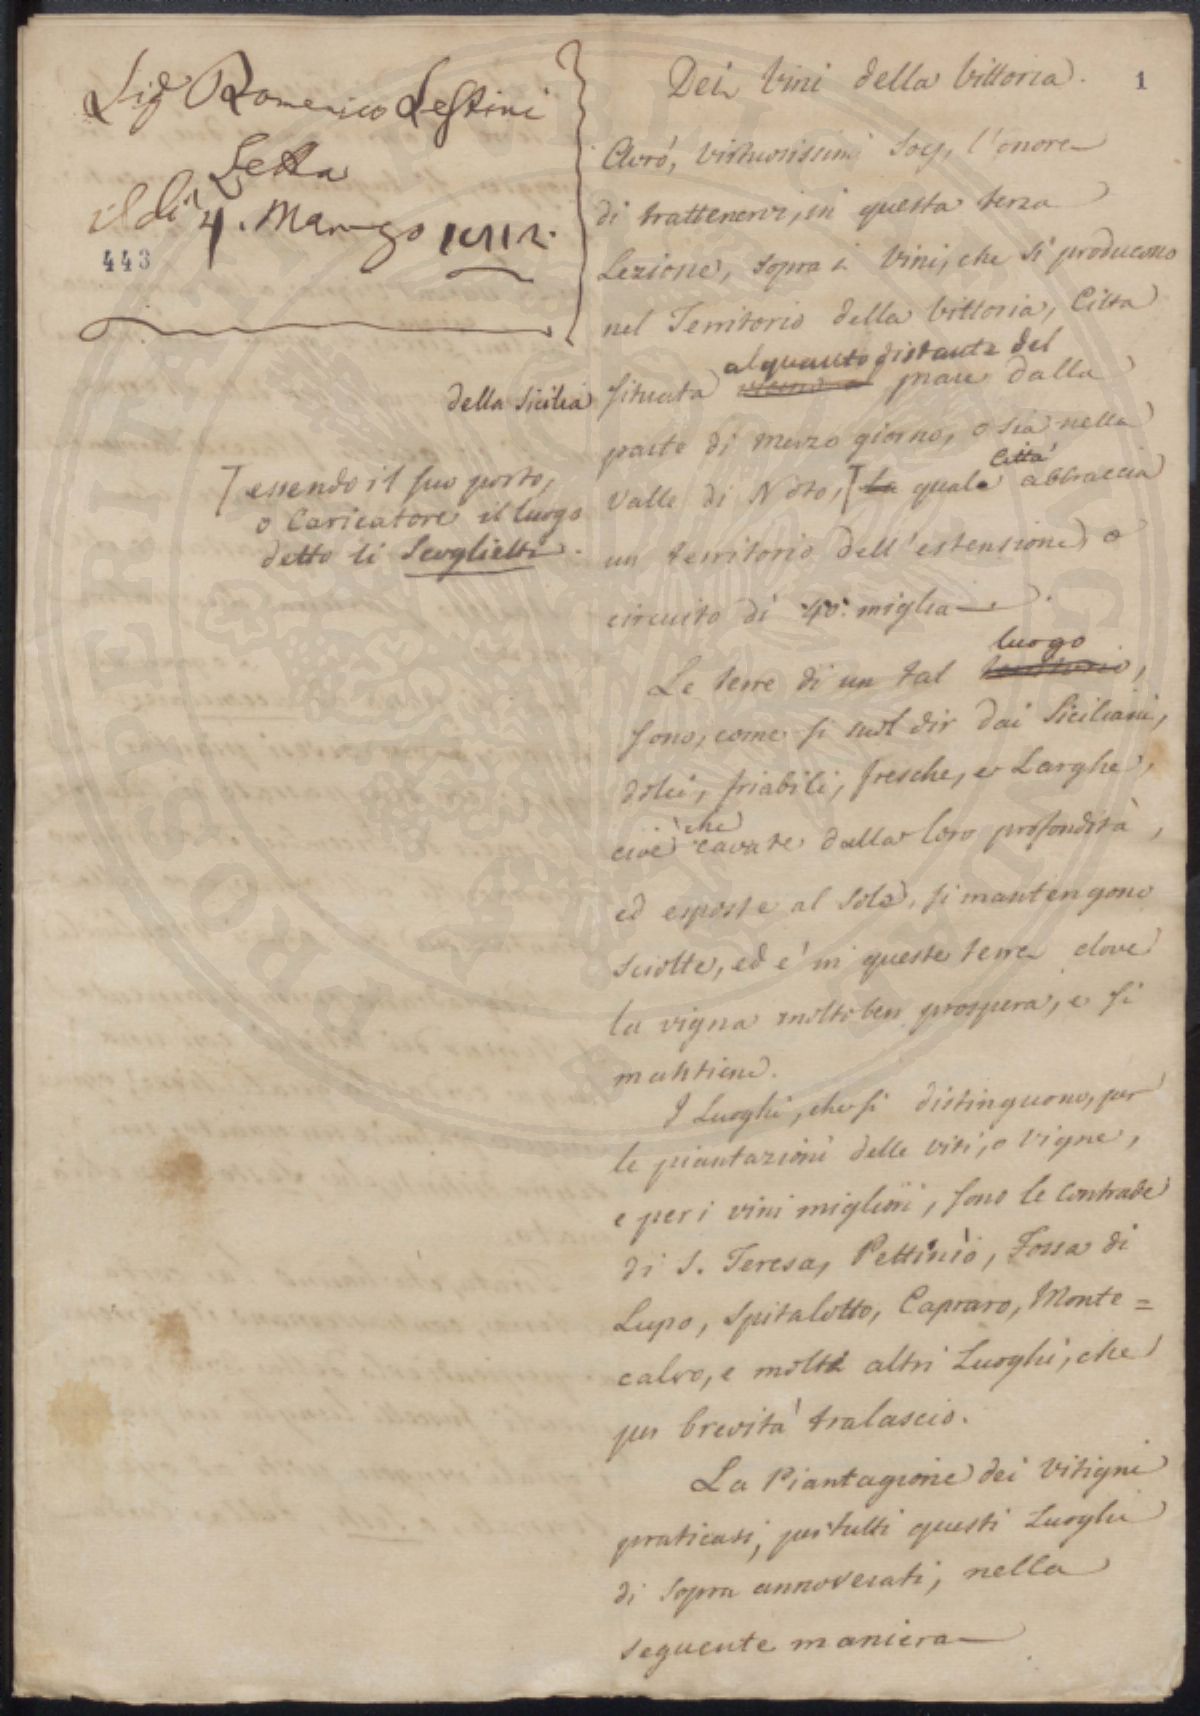 Sig.r Domenico Sestini
Letta
il dì 4. Marzo 1812.
443
della Sicilia
essendo il suo porto,
o Caricatore il luogo
detto li Scoglietti.
Dei Vini della Vittoria.
1
Avrò, virtuosissimi Socj, l'onore
di trattenervi, in questa terza
Lezione, sopra i Vini, che si producono
nel Territorio della Vittoria, Città
alquanto distante del
situata mare dalla
parte di mezzo giorno, o sia nella
Città
Valle di Noto, la quale abbraccia
un territorio dell'estensione, o
circuito di 40. miglia.
luogo
Le terre di un tal territorio,
sono, come si suol dir dai Siciliani,
dolci, friabili, fresche, e Larghe,
che
cioè cavate dalla loro profondità,
ed esposte al sole, si mantengono
sciolte, ed e' in queste terre dove
la vigna molto ben prospera, e si
mantiene.
I Luoghi, che si distinguono, per
le piantazioni delle viti, o vigne,
e per i vini migliori, sono le Contrade
di S. Teresa, Pettinìo, Fossa di
Lupo, Spitalotto, Capraro, Monte=
calvo, e molti altri Luoghi, che
per brevità tralascio.
La Piantagione dei Vitigni
praticasi, per tutti questi Luoghi
di sopra annoverati, nella
seguente maniera